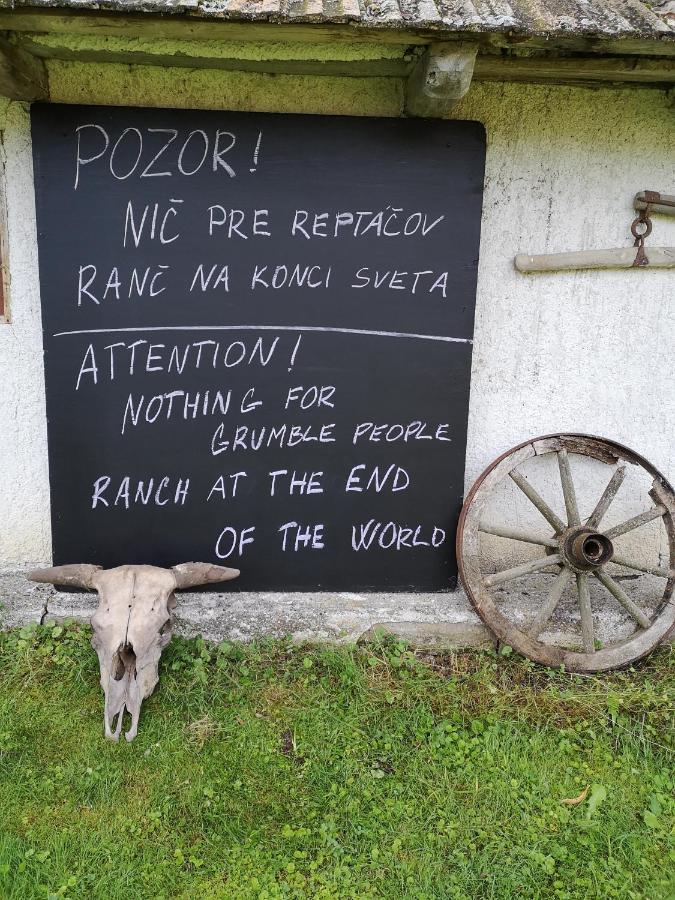 POZOR!
NIČ PRE REPTÁČOV
RANČ NA KONCI SVETA
ATTENTION!
NOTHING FOR
GRUMBLE PEOPLE
RANCH AT THE END
OF THE WORLD